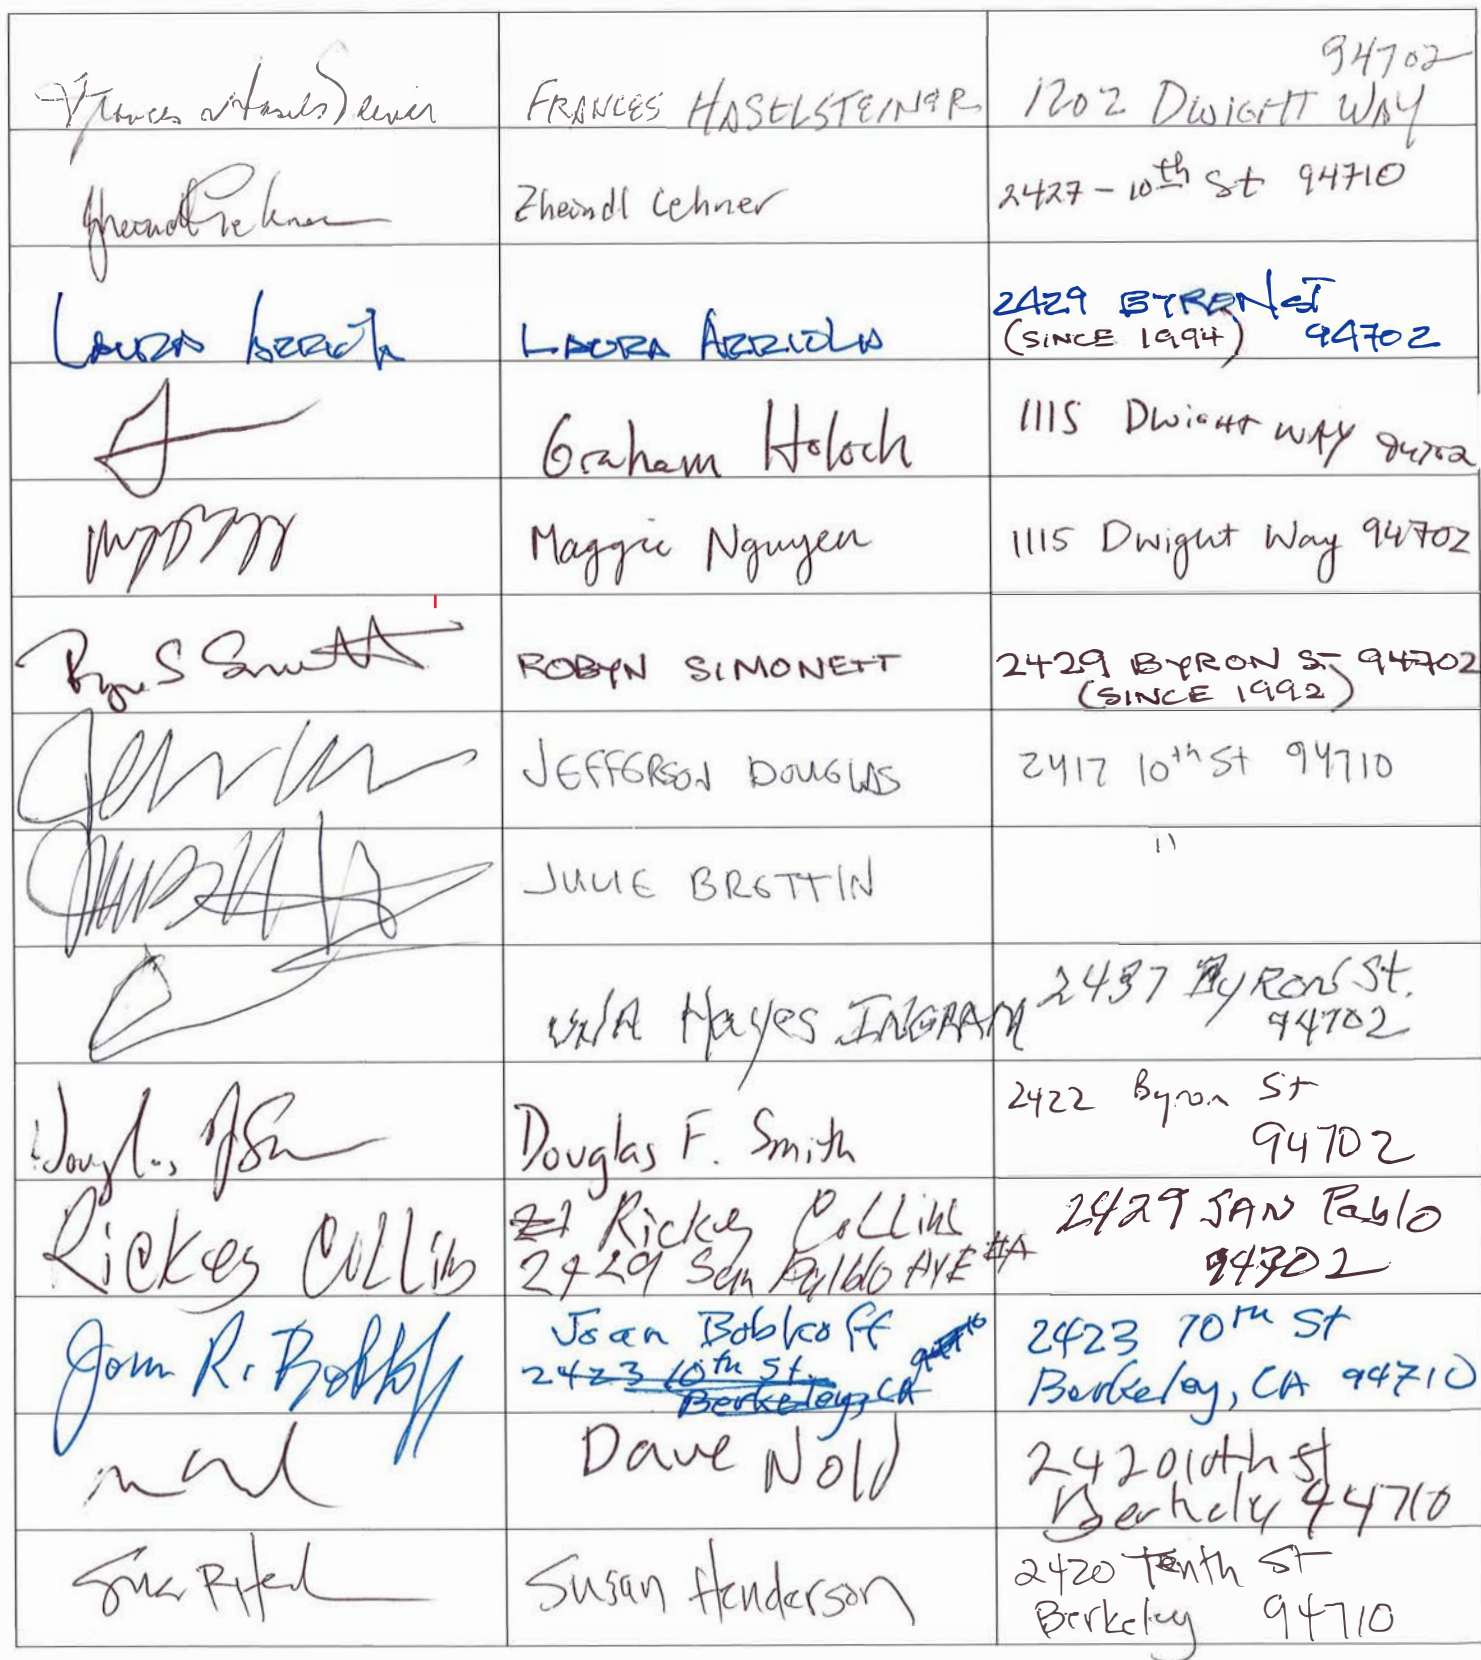 Frances Haselsteiner FRANCES HASELSTEINER 1202 DWIGHT WAY
94702
Zheindl Lehner 2427 - 10th St 94710
LAURA ARRIOLA LAURA ARRIOLA 2429 BYRON ST
(SINCE 1994) 94702
Graham Holoch 1115 Dwight WAY 94702
Maggie Nguyen 1115 Dwight Way 94702
ROBYN SIMONETT 2429 BYRON ST 94702
(SINCE 1992)
JEFFERSON DOUGLAS 2417 10th St 94710
JULIE BRETTIN "
Hayes INGRAM 2437 BYRON St.
94702
Douglas F. Smith 2422 Byron St
94702
Rickey Collins Rickey Collins 2429 SAN Pablo
2429 San Pablo AVE #A 94702
Joan R. Bobkoff Joan Bobkoff 2423 10th St
2423 10th St. Berkeley, CA 94710
Berkeley, CA 94710
Dave Nold 2420 10th St
Berkely 94710
Susan Henderson 2420 Tenth St
Berkeley 94710